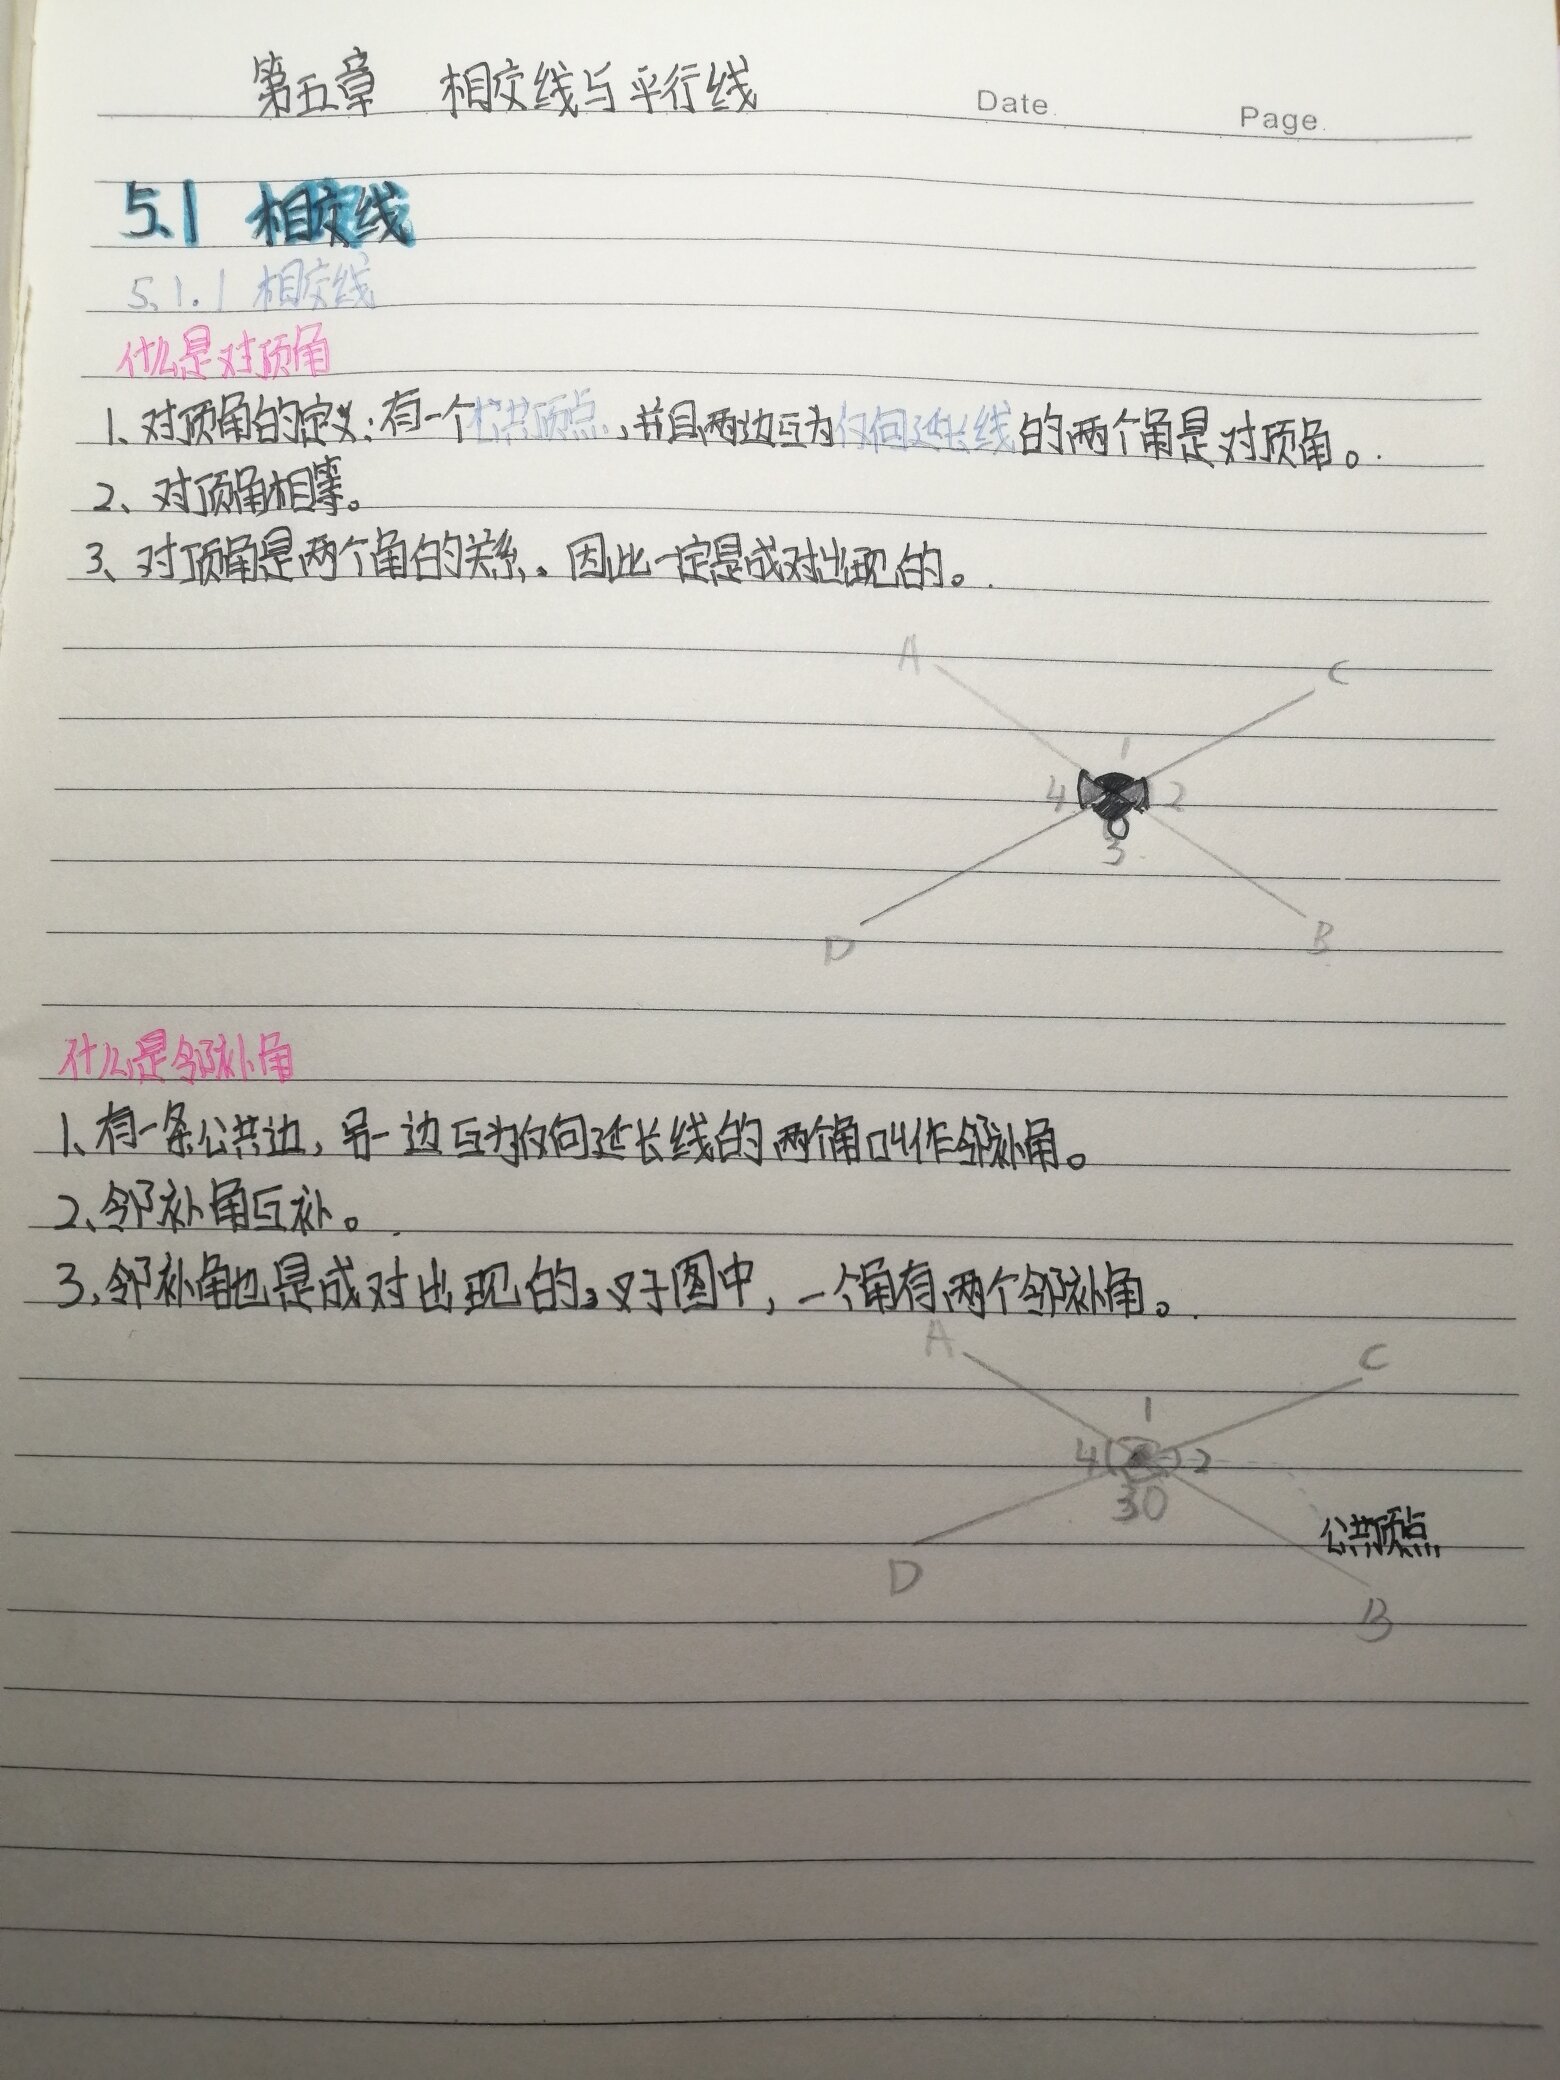 第五章 相交线与平行线
Date.
Page.
5.1 相交线
5.1.1 相交线
什么是对顶角
1、对顶角的定义:有一个公共顶点,并且两边互为反向延长线的两个角是对顶角。
2、对顶角相等。
3、对顶角是两个角的关系。因此一定是成对出现的。
A
C
1
4
2
O
3
D
B
什么是邻补角
1、有一条公共边,另一边互为反向延长线的两个角叫作邻补角。
2、邻补角互补。
3、邻补角也是成对出现的,对于图中,一个角有两个邻补角。
A
C
1
4
2
3 O
公共顶点
D
B